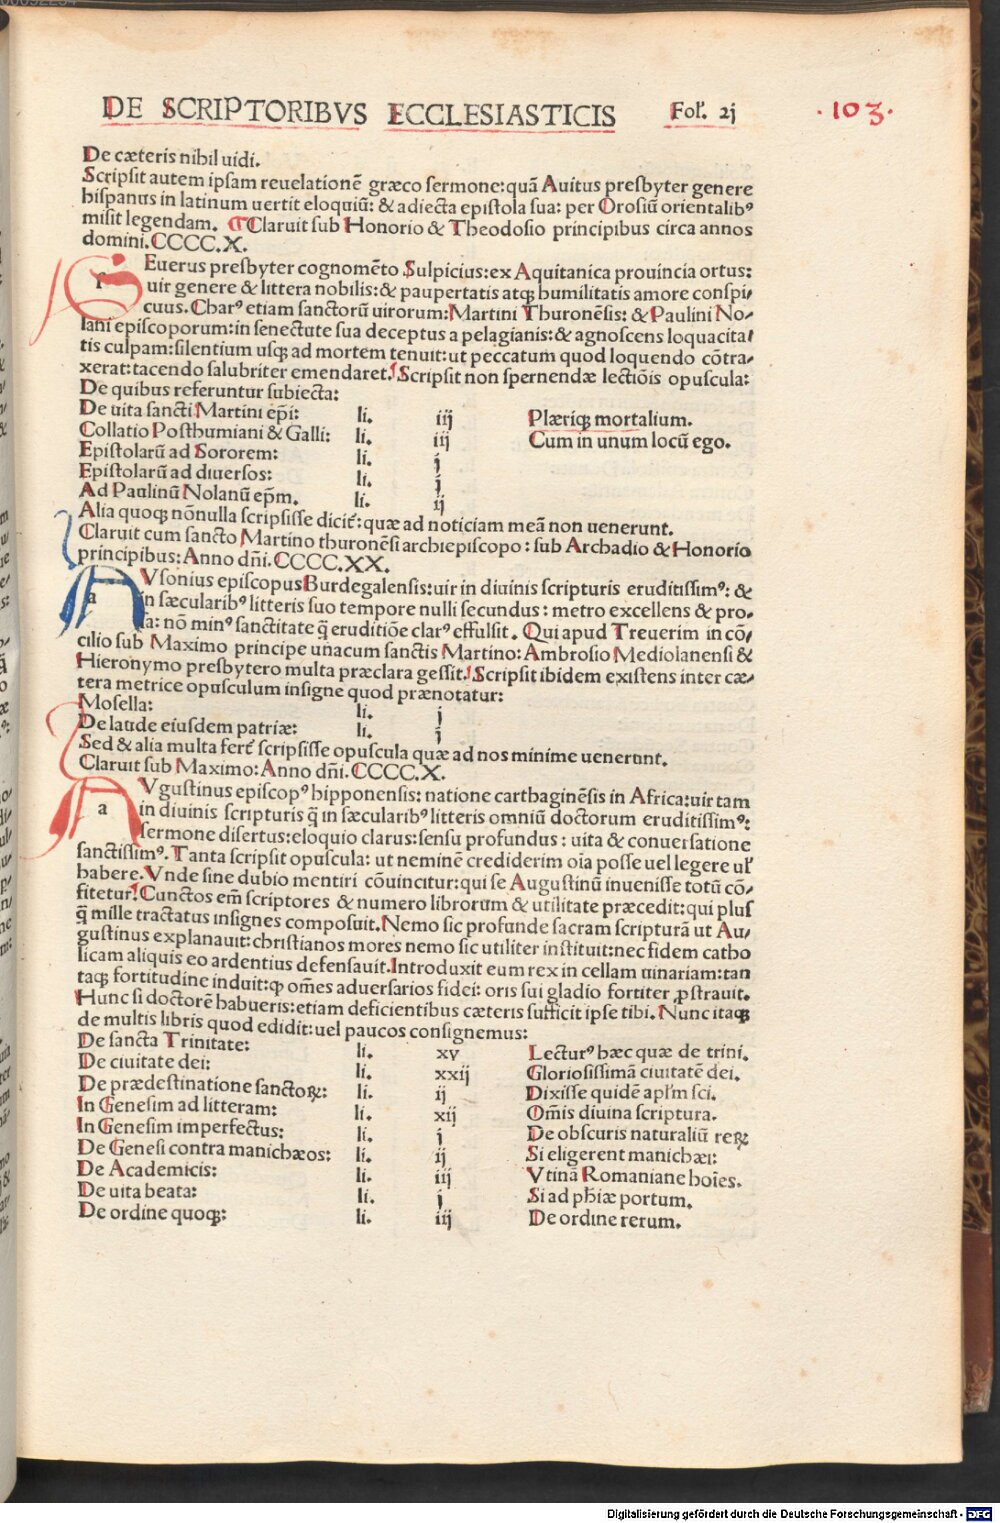 DE SCRIPTORIBVS ECCLESIASTICIS Fol. 2j .103.
De cæteris nihil uidi.
Scripsit autem ipsam reuelationē græco sermone: quā Auitus presbyter genere
hispanus in latinum uertit eloquiū: & adiecta epistola sua: per Orosiū orientalibꝰ
misit legendam. ¶ Claruit sub Honorio & Theodosio principibus circa annos
domini. CCCC.X.
SEuerus presbyter cognomēto Sulpicius: ex Aquitanica prouincia ortus:
uir genere & littera nobilis: & paupertatis atqꝫ humilitatis amore conspi/
cuus. Charꝰ etiam sanctorū uirorum: Martini Thuronēsis: & Paulini No/
lani episcoporum: in senectute sua deceptus a pelagianis: & agnoscens loquacita/
tis culpam: silentium usqꝫ ad mortem tenuit: ut peccatum quod loquendo cōtra/
xerat: tacendo salubriter emendaret. Scripsit non spernendæ lectiōis opuscula:
De quibus referuntur subiecta:
De uita sancti Martini ep̄i: li. iij Plæriqꝫ mortalium.
Collatio Posthumiani & Galli: li. iij Cum in unum locū ego.
Epistolarū ad Sororem: li. j
Epistolarū ad diuersos: li. j
Ad Paulinū Nolanū ep̄m. li. ij
Alia quoqꝫ nōnulla scripsisse dicit̄: quæ ad noticiam meā non uenerunt.
Claruit cum sancto Martino thuronēsi archiepiscopo: sub Archadio & Honorio
principibus: Anno dn̄i. CCCC.XX.
AVsonius episcopus Burdegalensis: uir in diuinis scripturis eruditissimꝰ: &
in sæcularibꝰ litteris suo tempore nulli secundus: metro excellens & pro/
sa: nō minꝰ sanctitate q̄ eruditiōe clarꝰ effulsit. Qui apud Treuerim in cō/
cilio sub Maximo principe unacum sanctis Martino: Ambrosio Mediolanensi &
Hieronymo presbytero multa præclara gessit. Scripsit ibidem existens inter cæ/
tera metrice opusculum insigne quod prænotatur:
Mosella: li. j
De laude eiusdem patriæ: li. j
Sed & alia multa fert̄ scripsisse opuscula quæ ad nos minime uenerunt.
Claruit sub Maximo: Anno dn̄i. CCCC.X.
AVgustinus episcopꝰ hipponensis: natione carthaginēsis in Africa: uir tam
in diuinis scripturis q̄ in sæcularibꝰ litteris omniū doctorum eruditissimꝰ:
sermone disertus: eloquio clarus: sensu profundus: uita & conuersatione
sanctissimꝰ. Tanta scripsit opuscula: ut neminē crediderim oīa posse uel legere ul̄
habere. Vnde sine dubio mentiri cōuincitur: qui se Augustinū inuenisse totū cō/
fitetur. Cunctos em̄ scriptores & numero librorum & utilitate præcedit: qui plus
q̄ mille tractatus insignes composuit. Nemo sic profunde sacram scripturā ut Au/
gustinus explanauit: christianos mores nemo sic utiliter instituit: nec fidem catho
licam aliquis eo ardentius defensauit. Introduxit eum rex in cellam uinariam: tan
taqꝫ fortitudine induit: ꝙ om̄es aduersarios fidei: oris sui gladio fortiter ꝓstrauit.
Hunc si doctorē habueris: etiam deficientibus cæteris sufficit ipse tibi. Nunc itaqꝫ
de multis libris quod edidit: uel paucos consignemus:
De sancta Trinitate: li. xv Lecturꝰ hæc quæ de trini.
De ciuitate dei: li. xxij Gloriosissimā ciuitatē dei.
De prædestinatione sanctoꝝ: li. ij Dixisse quidē apl̄m sci.
In Genesim ad litteram: li. xij Om̄is diuina scriptura.
In Genesim imperfectus: li. j De obscuris naturaliū reꝝ
De Genesi contra manichæos: li. ij Si eligerent manichæi:
De Academicis: li. iij Vtinā Romaniane hoīes.
De uita beata: li. j Si ad ph̄iæ portum.
De ordine quoqꝫ: li. iij De ordine rerum.
Digitalisierung gefördert durch die Deutsche Forschungsgemeinschaft - DFG